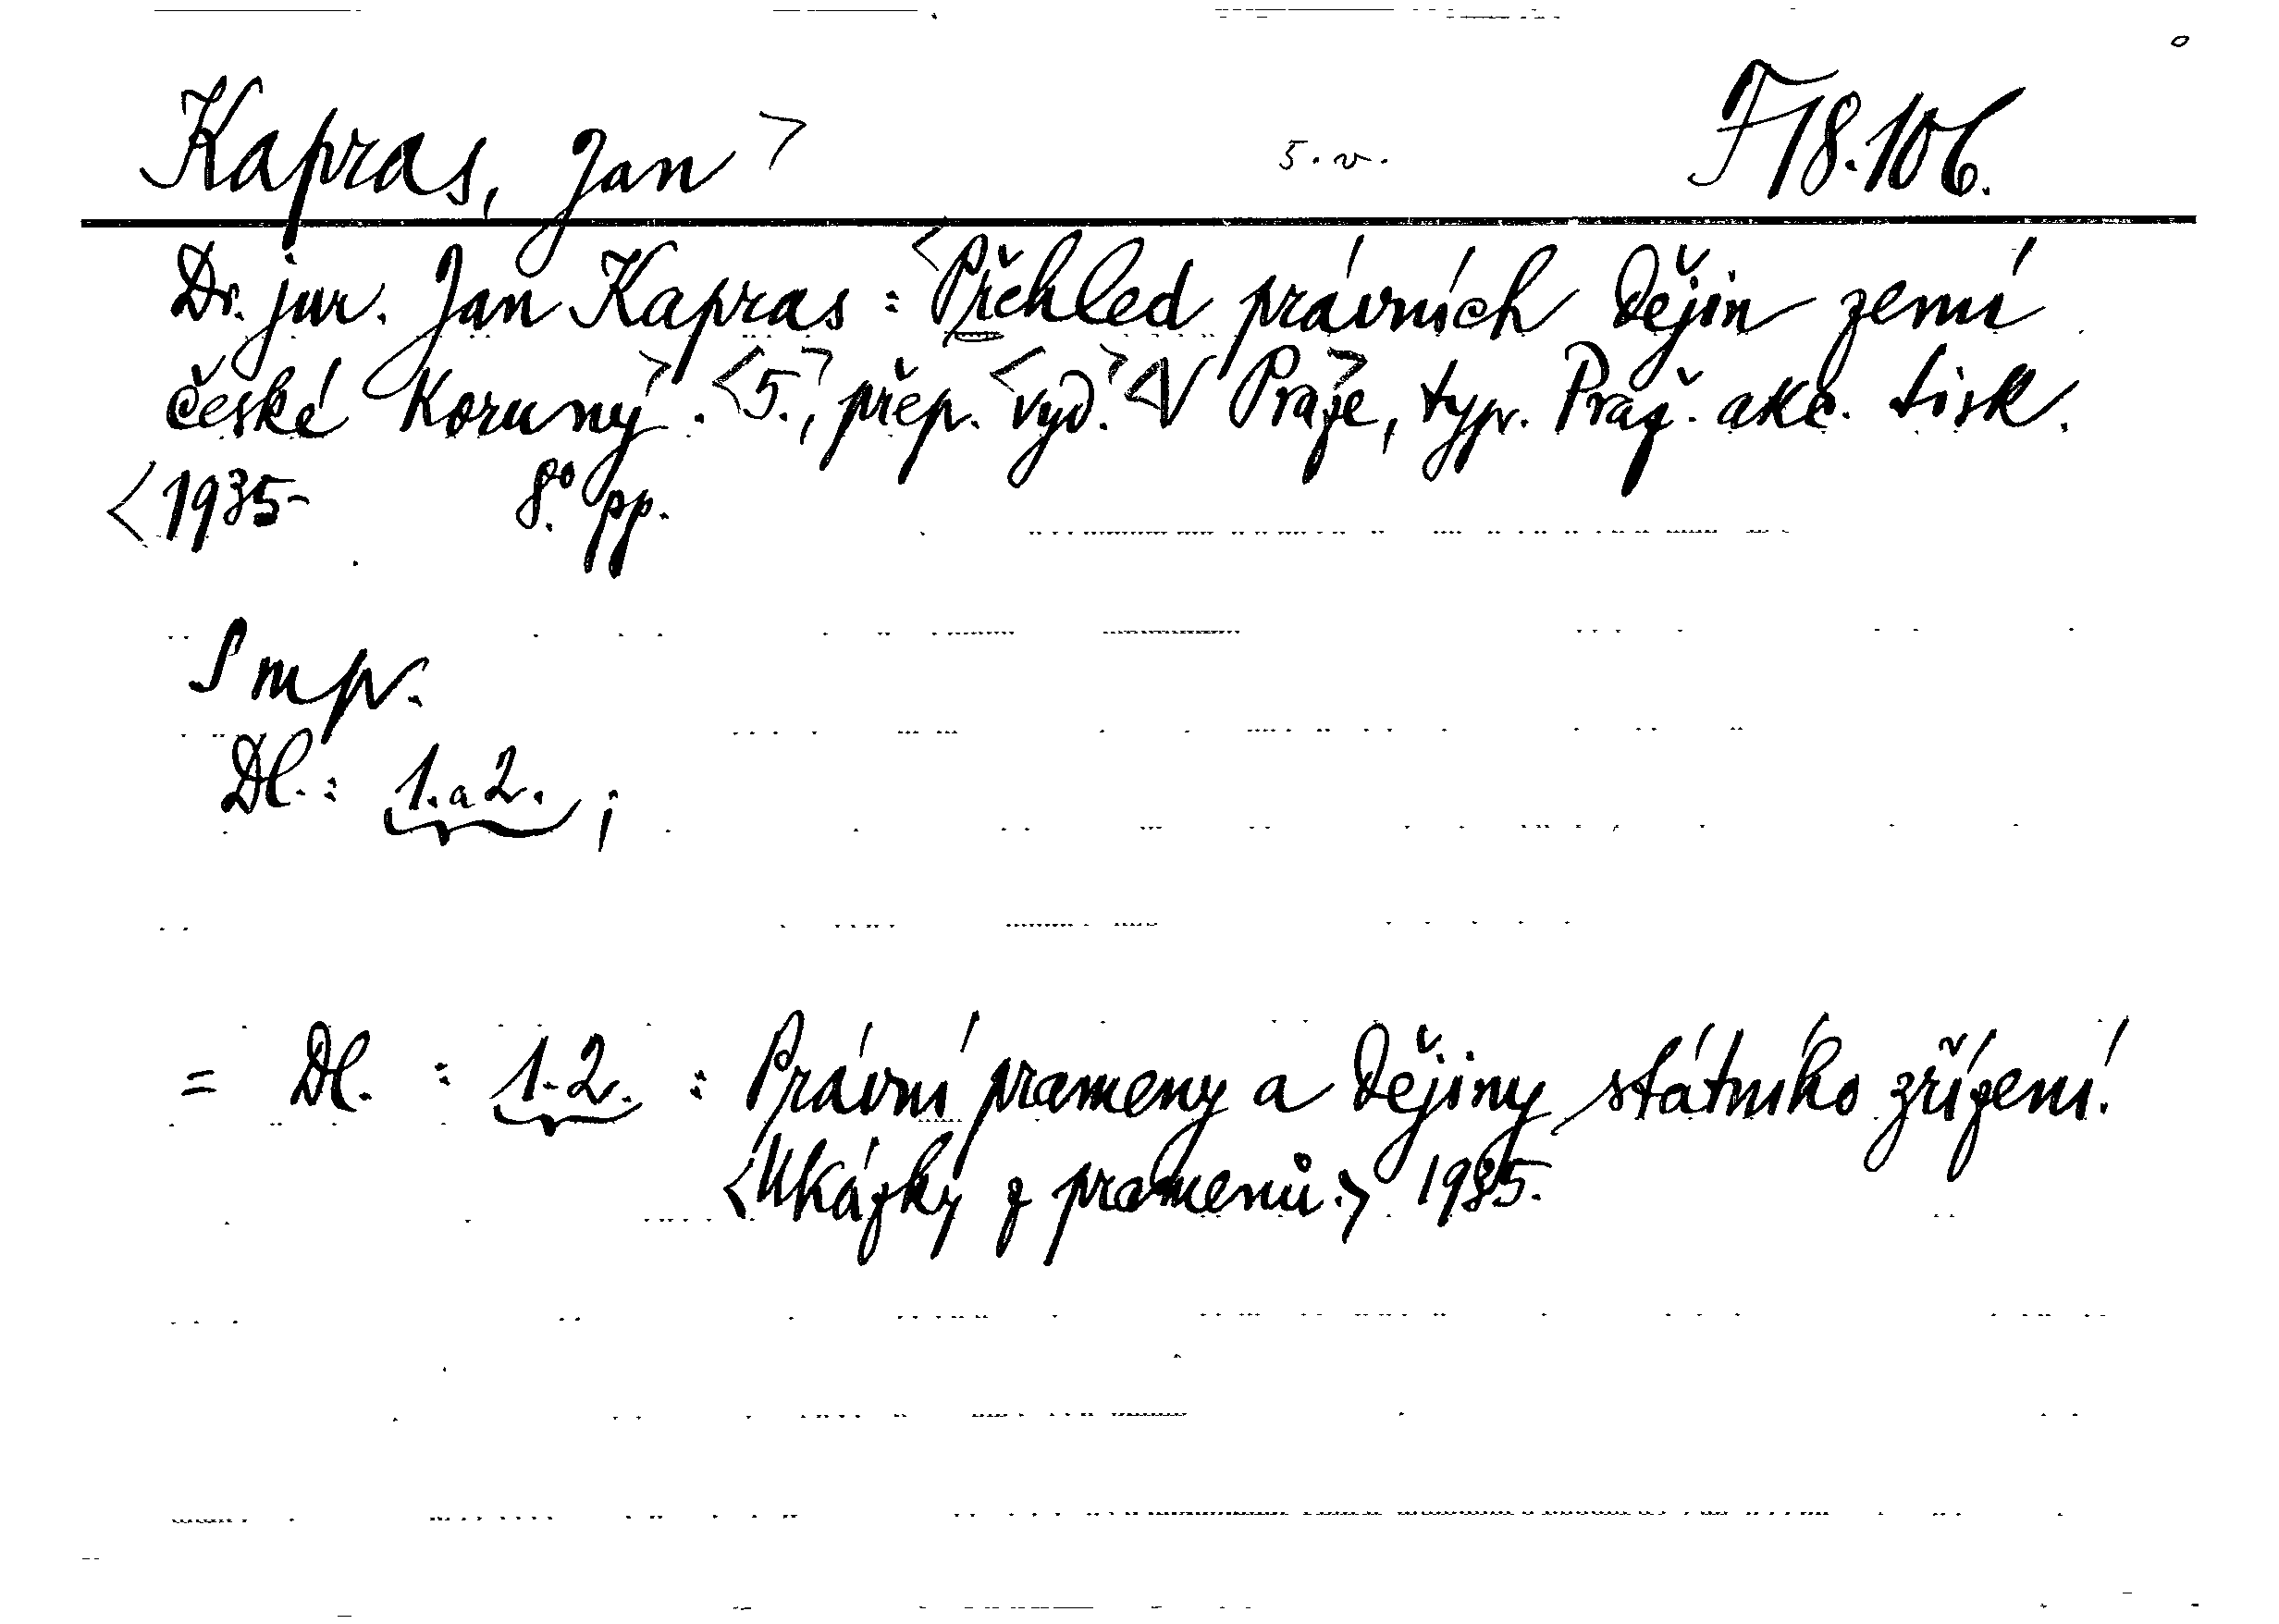 Kapras, Jan > 5.v. F18.106.
Dr. jur. Jan Kapras : <Přehled právních dějin zemí
české koruny>. <5.>, přep. <vyd.> <V Praze>, typ. Praž. akc. tisk.
<1935- 8° pp.
Dl.: 1.a 2. ;
= Dl. : 1.-2. : Právní prameny a dějiny státního zřízení.
<Ukázky z pramenů.> 1935.